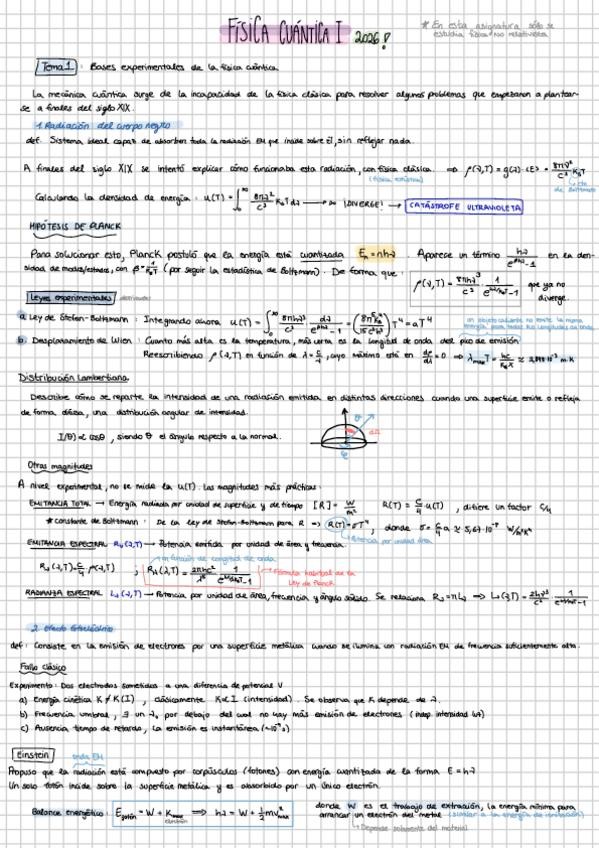 FÍSICA CUÁNTICA I 2026!
* En esta asignatura sólo se estudia física no relativista
Tema 1: Bases experimentales de la física cuántica
La mecánica cuántica surge de la incapacidad de la física clásica para resolver algunos problemas que empezaron a plantear-
se a finales del siglo XIX.
1. Radiación del cuerpo negro
def. Sistema ideal capaz de absorber toda la radiación EM que incide sobre él, sin reflejar nada.
A finales del siglo XIX se intentó explicar cómo funcionaba esta radiación, con física clásica. ⇒ ρ(ν,T) = g(ν)·<E> = 8πν²/c³ K_BT
(física estadística)
cte. de Boltzmann
Calculando la densidad de energía: u(T) = ∫₀^∞ 8πν²/c³ K_BT dν → ∞ ¡DIVERGE! → CATÁSTROFE ULTRAVIOLETA
HIPÓTESIS DE PLANCK
Para solucionar esto, Planck postuló que la energía está cuantizada Eₙ = nhν. Aparece un término hν/(e^(βhν)-1) en la den-
sidad de modos/estados, con β = 1/K_BT (por seguir la estadística de Boltzmann). De forma que: ρ(ν,T) = 8πhν³/c³ · 1/(e^(hν/K_BT)-1) que ya no diverge.
Leyes experimentales
a. Ley de Stefan-Boltzmann: Integrando ahora u(T) = ∫₀^∞ 8πhν³/c³ · dν/(e^(βhν)-1) = (8π⁵K_B⁴/15c³h³) T⁴ = aT⁴
un objeto caliente no emite la misma energía para todas las longitudes de onda
b. Desplazamiento de Wien: Cuanto más alta es la temperatura, más corta es la longitud de onda del pico de emisión
Reescribiendo ρ(ν,T) en función de λ = c/ν, cuyo máximo está en dρ/dλ = 0 ⇒ λmax T = hc/K_Bx ≈ 2,898·10⁻³ m·K
Distribución Lambertiana
Describe cómo se reparte la intensidad de una radiación emitida en distintas direcciones cuando una superficie emite o refleja
de forma difusa, una distribución angular de intensidad.
I(θ) ∝ cosθ, siendo θ el ángulo respecto a la normal.
Otras magnitudes
A nivel experimental, no se mide la u(T). Las magnitudes más prácticas:
EMITANCIA TOTAL → Energía radiada por unidad de superficie y de tiempo [R] = W/m² R(T) = c/4 u(T), difiere un factor c/4
* Constante de Boltzmann: De la Ley de Stefan-Boltzmann para R ⇒ R(T) = σT⁴, donde σ = c/4 a ≈ 5,67·10⁻⁸ W/m²K⁴
Potencia por unidad área
EMITANCIA ESPECTRAL Rν(ν,T) → Potencia emitida por unidad de área y frecuencia.
en función de longitud de onda
Rν(ν,T) = c/4 ρ(ν,T) ; Rλ(λ,T) = 2πhc²/λ⁵ 1/(e^(hc/λK_BT)-1) → Fórmula habitual de la Ley de Planck
RADIANZA ESPECTRAL Lν(ν,T) → Potencia por unidad de área, frecuencia y ángulo sólido. Se relaciona Rν = πLν ⇒ Lν(ν,T) = 2hν³/c² 1/(e^(hν/K_BT)-1)
2. Efecto fotoeléctrico
def: Consiste en la emisión de electrones por una superficie metálica cuando se ilumina con radiación EM de frecuencia suficientemente alta.
Fallo clásico
Experimento: Dos electrodos sometidos a una diferencia de potencial V
a) Energía cinética K ≠ K(I), clásicamente K∝I (intensidad). Se observa que K depende de ν.
b) Frecuencia umbral, ∃ un ν₀ por debajo del cual no hay más emisión de electrones (indep. intensidad luz)
c) Ausencia tiempo de retardo, la emisión es instantánea (~10⁻⁹ s)
Einstein
onda EM
Propuso que la radiación está compuesta por corpúsculos (fotones) con energía cuantizada de la forma E = hν
Un solo fotón incide sobre la superficie metálica y es absorbido por un único electrón.
Balance energético: E_fotón = W + Kmax ⇒ hν = W + 1/2 mv²max
electrón
donde W es el trabajo de extracción, la energía mínima para
arrancar un electrón del metal (similar a la energía de ionización)
Depende solamente del material